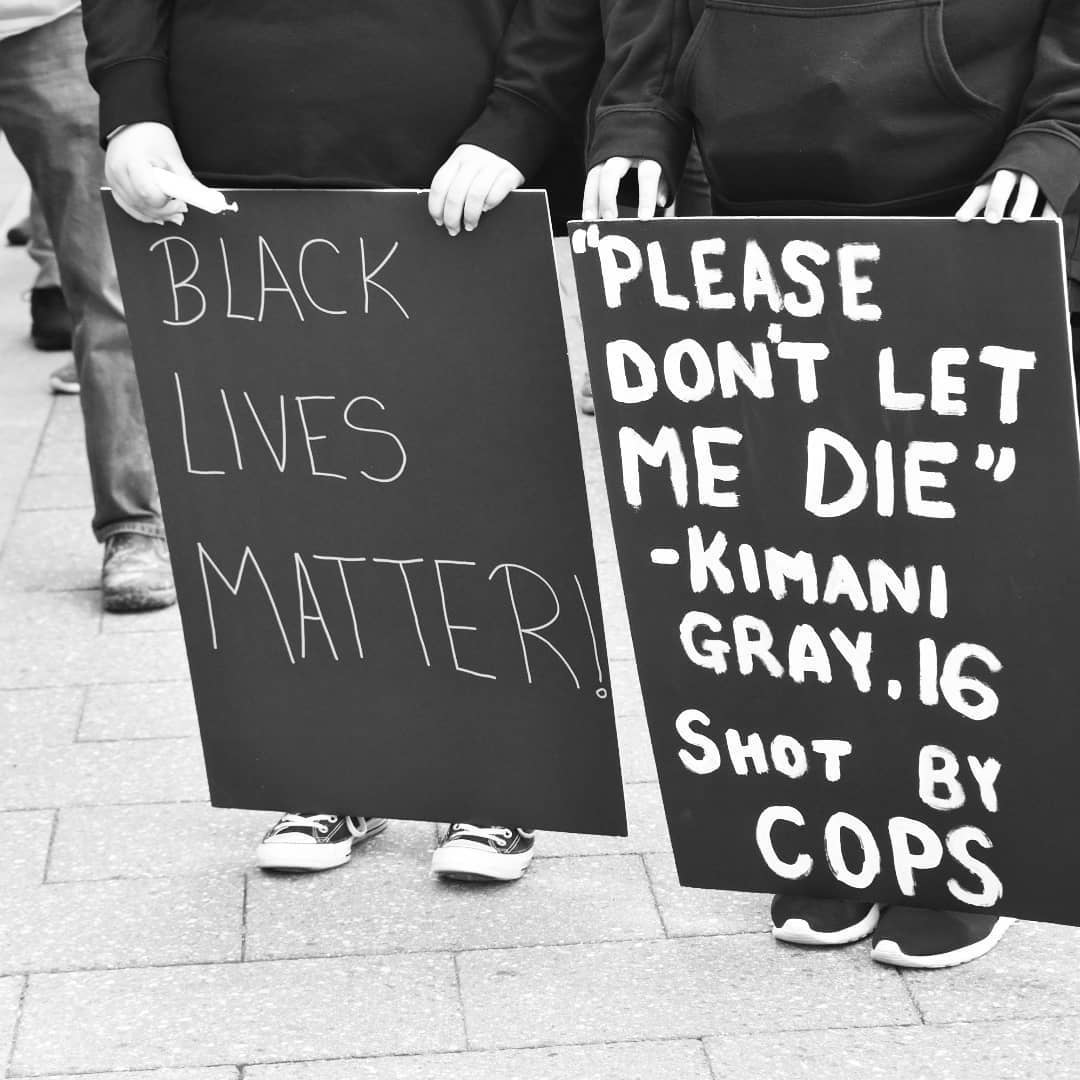 BLACK
LIVES
MATTER!
"PLEASE
DON'T LET
ME DIE"
-KIMANI
GRAY, 16
SHOT BY
COPS